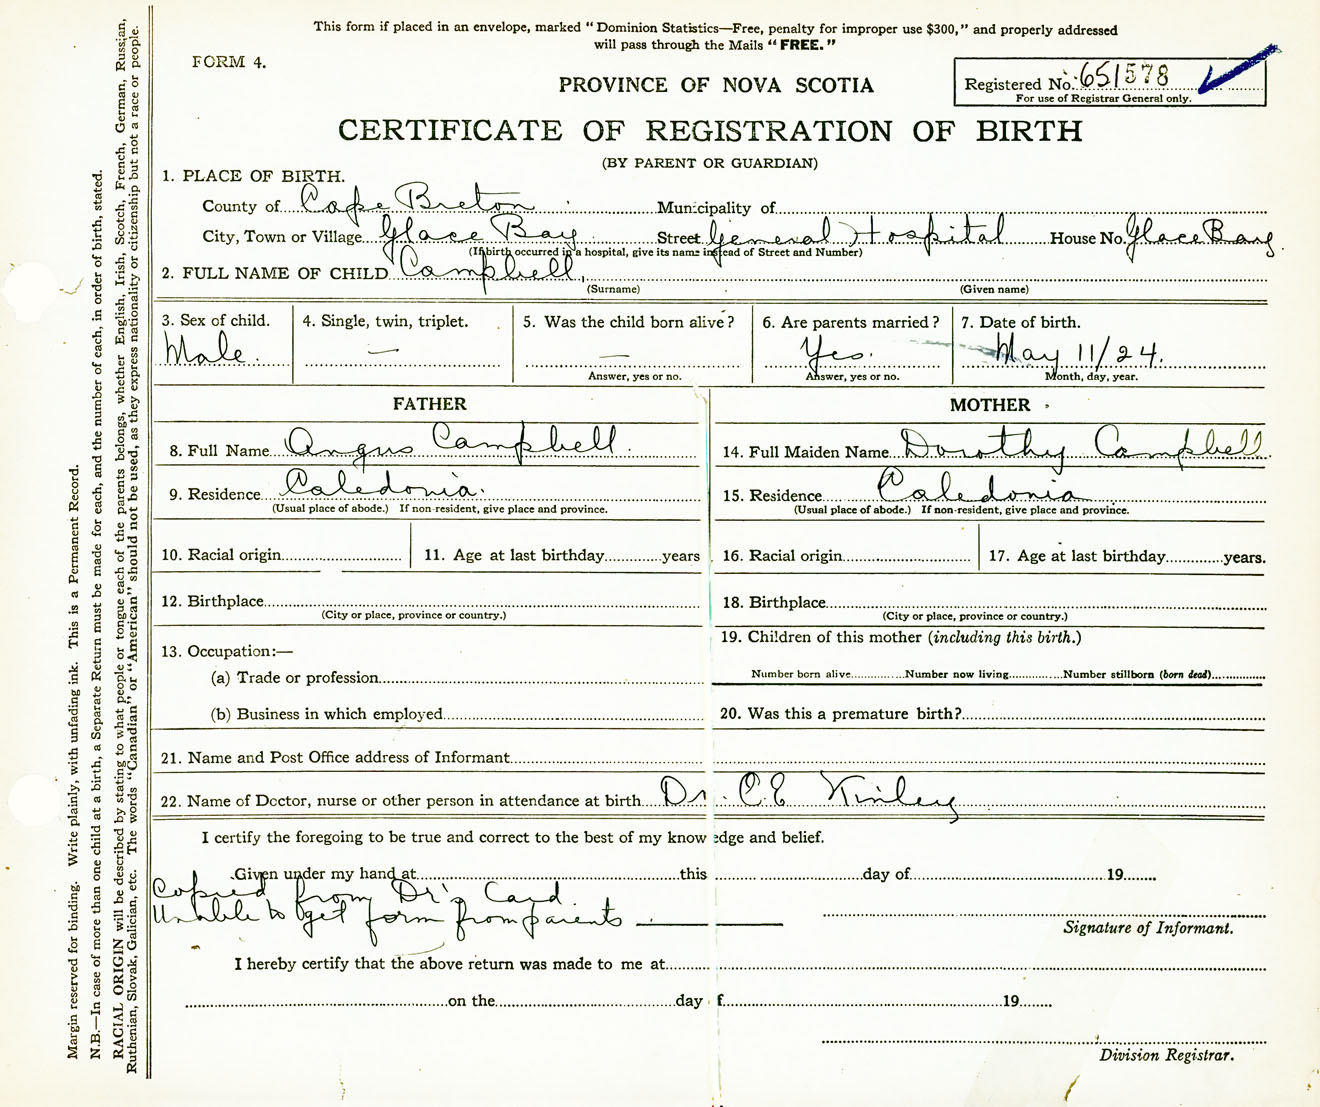 This form if placed in an envelope, marked "Dominion Statistics—Free, penalty for improper use $300," and properly addressed
will pass through the Mails "FREE."
FORM 4.
PROVINCE OF NOVA SCOTIA
Registered No. 651578
For use of Registrar General only.
CERTIFICATE OF REGISTRATION OF BIRTH
(BY PARENT OR GUARDIAN)
1. PLACE OF BIRTH.
County of Cape Breton Municipality of
City, Town or Village Glace Bay Street General Hospital House No. Glace Bay
(If birth occurred in a hospital, give its name instead of Street and Number)
2. FULL NAME OF CHILD Campbell,
(Surname) (Given name)
3. Sex of child. 4. Single, twin, triplet. 5. Was the child born alive? 6. Are parents married? 7. Date of birth.
Male. — — Yes. May 11/24.
Answer, yes or no. Answer, yes or no. Month, day, year.
FATHER MOTHER
8. Full Name Angus Campbell. 14. Full Maiden Name Dorothy Campbell
9. Residence Caledonia. 15. Residence Caledonia
(Usual place of abode.) If non-resident, give place and province. (Usual place of abode.) If non-resident, give place and province.
10. Racial origin 11. Age at last birthday years 16. Racial origin 17. Age at last birthday years.
12. Birthplace 18. Birthplace
(City or place, province or country.) (City or place, province or country.)
19. Children of this mother (including this birth.)
13. Occupation:—
(a) Trade or profession Number born alive Number now living Number stillborn (born dead)
(b) Business in which employed 20. Was this a premature birth?
21. Name and Post Office address of Informant
22. Name of Doctor, nurse or other person in attendance at birth Dr. C.E Kinley
I certify the foregoing to be true and correct to the best of my knowledge and belief.
Given under my hand at this day of 19
Copied from Dr's Card
Unable to get form from parents
Signature of Informant.
I hereby certify that the above return was made to me at
on the day of 19
Division Registrar.
Margin reserved for binding. Write plainly, with unfading ink. This is a Permanent Record.
N.B.—In case of more than one child at a birth, a Separate Return must be made for each, and the number of each, in order of birth, stated.
RACIAL ORIGIN will be described by stating to what people or tongue each of the parents belongs, whether English, Irish, Scotch, French, German, Russian,
Ruthenian, Slovak, Galician, etc. The words "Canadian" or "American" should not be used, as they express nationality or citizenship but not a race or people.